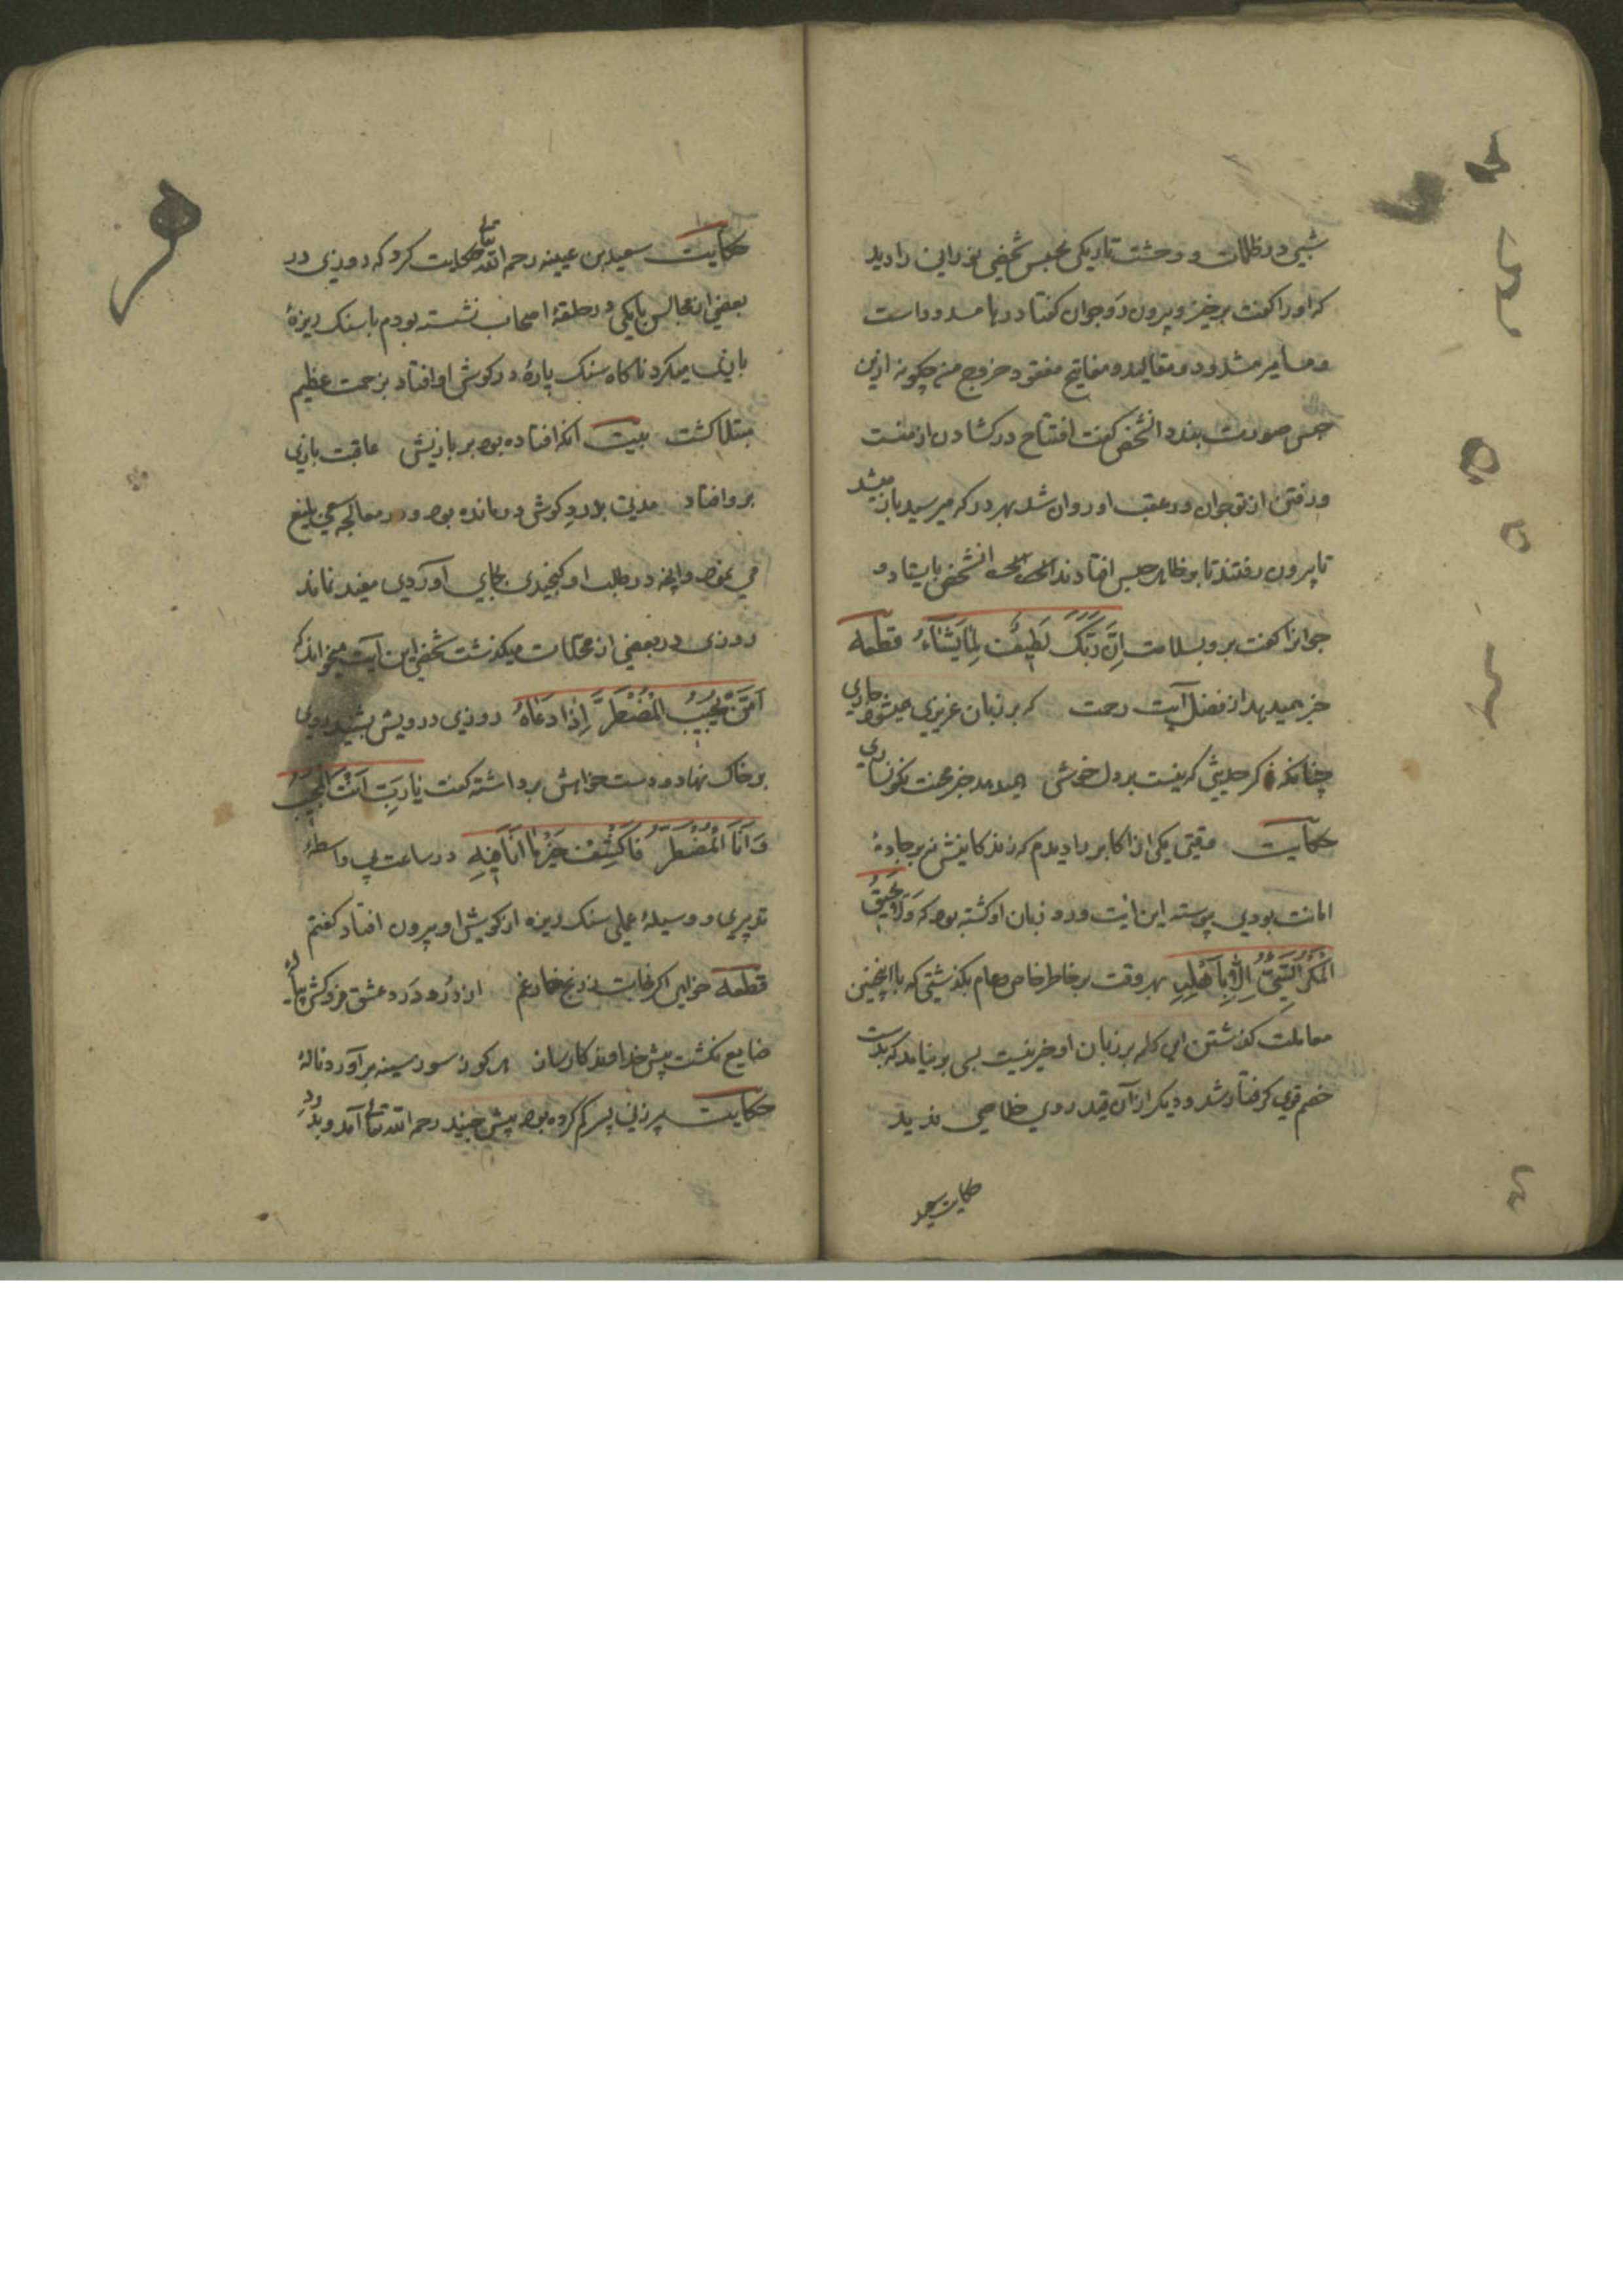 شبی در ظلمات و وحشت تاریکی محبس شخصی نورانی را دید
که او را کفت برخیز و بیرون رو جوان کفتا درها مسدود است
و مسامیر مشدود و مقالید و مفاتیح مفقود خروج من چکونه ازین
حبس صورت بندد انشخص کفت افتتاح در کشادن از منست
و رفتن از تو جوان در عقب او روان شد بهر در که میرسید باز میشد
تا بیرون رفتند تا بظاهر حبس افتادند انشخص بایستاد و
جوانرا کفت برو بسلامت اِنَّ رَبَّکَ لَطِیفٌ لِمَا یَشَاءُ قطعه
خبر میدهد از فضل آیت رحمت که بر زبان عزیزی میشود جاری
چنانکه ذکر حدیثی که نیست بر دل خوش همیدهد خبر محنت نکونساری
حکایت وقتی یکی از اکابر را دیدم که زندکانیش نه بر جادهٔ
امانت بودی پیوسته این آیت ورد زبان او کشته بود که وَلَا یَحِیقُ
الْمَکْرُ السَّیِّئُ اِلَّا بِاَهْلِهِ هر وقت بر خاطر خاص و عام بکذشتی که با اینچنین
معاملت کذشتن این کلمه بر زبان او خیر نیست بسی برنیامد که بدست
خصم قوی کرفتار شد و دیکر از آن قید روی خلاصی ندید
حکایت سعید
حکایت سعید بن عیینه رحمه الله تعالی حکایت کرد که روزی در
بعضی از مجالس با یکی در حلقهٔ اصحاب نشسته بودم با سنک ریزهٔ
بازی میکرد ناکاه سنک پارهٔ در کوش او افتاد بزحمت عظیم
مبتلا کشت بیت آنکه افتاده بود بر بازیش عاقبت بازی
برو افتاد مدتی بدرد کوش درمانده بود و در معالجه سعی بلیغ
می نمود و انچه در طلب او کنجیدی بجای آوردی مفید نماند
روزی در بعضی از محلات میکذشت شخصی این آیت میخواند که
اَمَّنْ یُجِیبُ الْمُضْطَرَّ اِذَا دَعَاهُ روزی درویش بشنید روی
بر خاک نهاد و دست خواهش برداشته کفت یَا رَبِّ اَنْتَ الْمُجِیبُ
وَ اَنَا الْمُضْطَرُّ فَاکْشِفْ ضُرَّ مَا اَنَا فِیهِ در ساعت بی واسطهٔ
تدبیری و وسیلهٔ عملی سنک ریزه از کوش او بیرون افتاد کفتم
قطعه خواهی اکر نجات ز رنج خمار غم از دُرد درد عشق فروکش پیالهٔ
ضایع نکشت پیش خداوند کارساز هرکو ز سوز سینه برآورد نالهٔ
حکایت پیرزنی پسر کم کرده بود پیش جنید رحمه الله تعالی آمد و بدرد